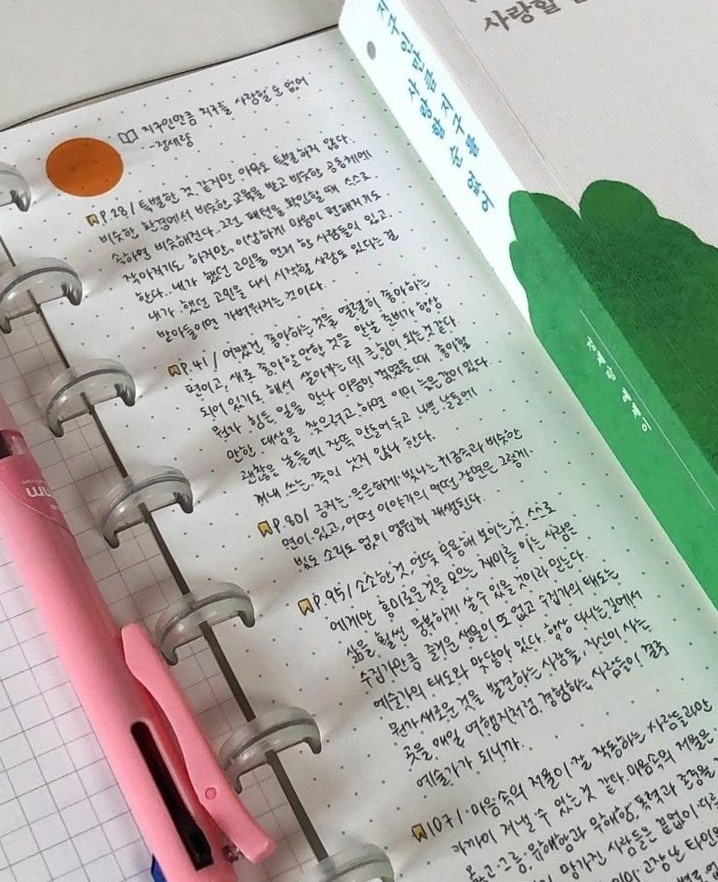 지구인만큼 지구를 사랑할 순 없어
-정세랑
P.28/ 특별한 것 같지만 아무도 특별하지 않다.
비슷한 환경에서 비슷한 교육을 받고 비슷한 공동체에
속하면 비슷해진다.. 그런 패턴을 확인할 때 스스로
작아지기도 하지만, 이상하게 마음이 편해지기도
한다. 내가 했던 고민을 먼저 한 사람들이 있고
내가 했던 고민을 다시 시작할 사람도 있다는 걸
받아들이면 가벼워지는 것이다.
P.41/ 어쨌건, 좋아하는 것을 열렬히 좋아하는
편이고, 새로 좋아할 만한 것을 만날 준비가 항상
되어 있기도 해서 살아가는 데 큰 힘이 되는 것 같다.
뭔가 힘든 일을 만나 마음이 꺾였을 때 좋아할
만한 대상을 찾으려고 하면 이미 늦은 감이 있다.
괜찮은 날들에 잔뜩 만들어 두고 나쁜 날들에
꺼내 쓰는 쪽이 낫지 않나 한다.
P.80/ 긍지는 은은하게 빛나는 귀금속과 비슷한
면이 있고, 어떤 이야기의 어떤 장면은 그렇게
빛도 소리도 없이 영원히 재생된다.
P.95/ 소소한 것, 언뜻 무용해 보이는 것, 스스로
에게만 흥미로운 것을 모으는 재미를 아는 사람은
삶을 훨씬 풍부하게 살 수 있을 것이라 믿는다.
수집가만큼 즐거운 생물이 또 없고 수집가의 태도는
예술가의 태도와 맞닿아 있다. 항상 다니는 길에서
뭔가 새로운 것을 발견하는 사람들, 자신이 사는
곳을 매일 여행지처럼 경험하는 사람들이 결국
예술가가 되니까.
P.107/ 마음속의 저울이 잘 작동하는 사람들과만
가까이 지낼 수 있는 것 같다. 마음속의 저울은
옳고 그름, 유해함과 무해함, 폭력과 존중을
망가진 사람들은 끝없이
고장 난 타인을
지구인만큼 지구를
사랑할 순 없어
정세랑 에세이
사랑할